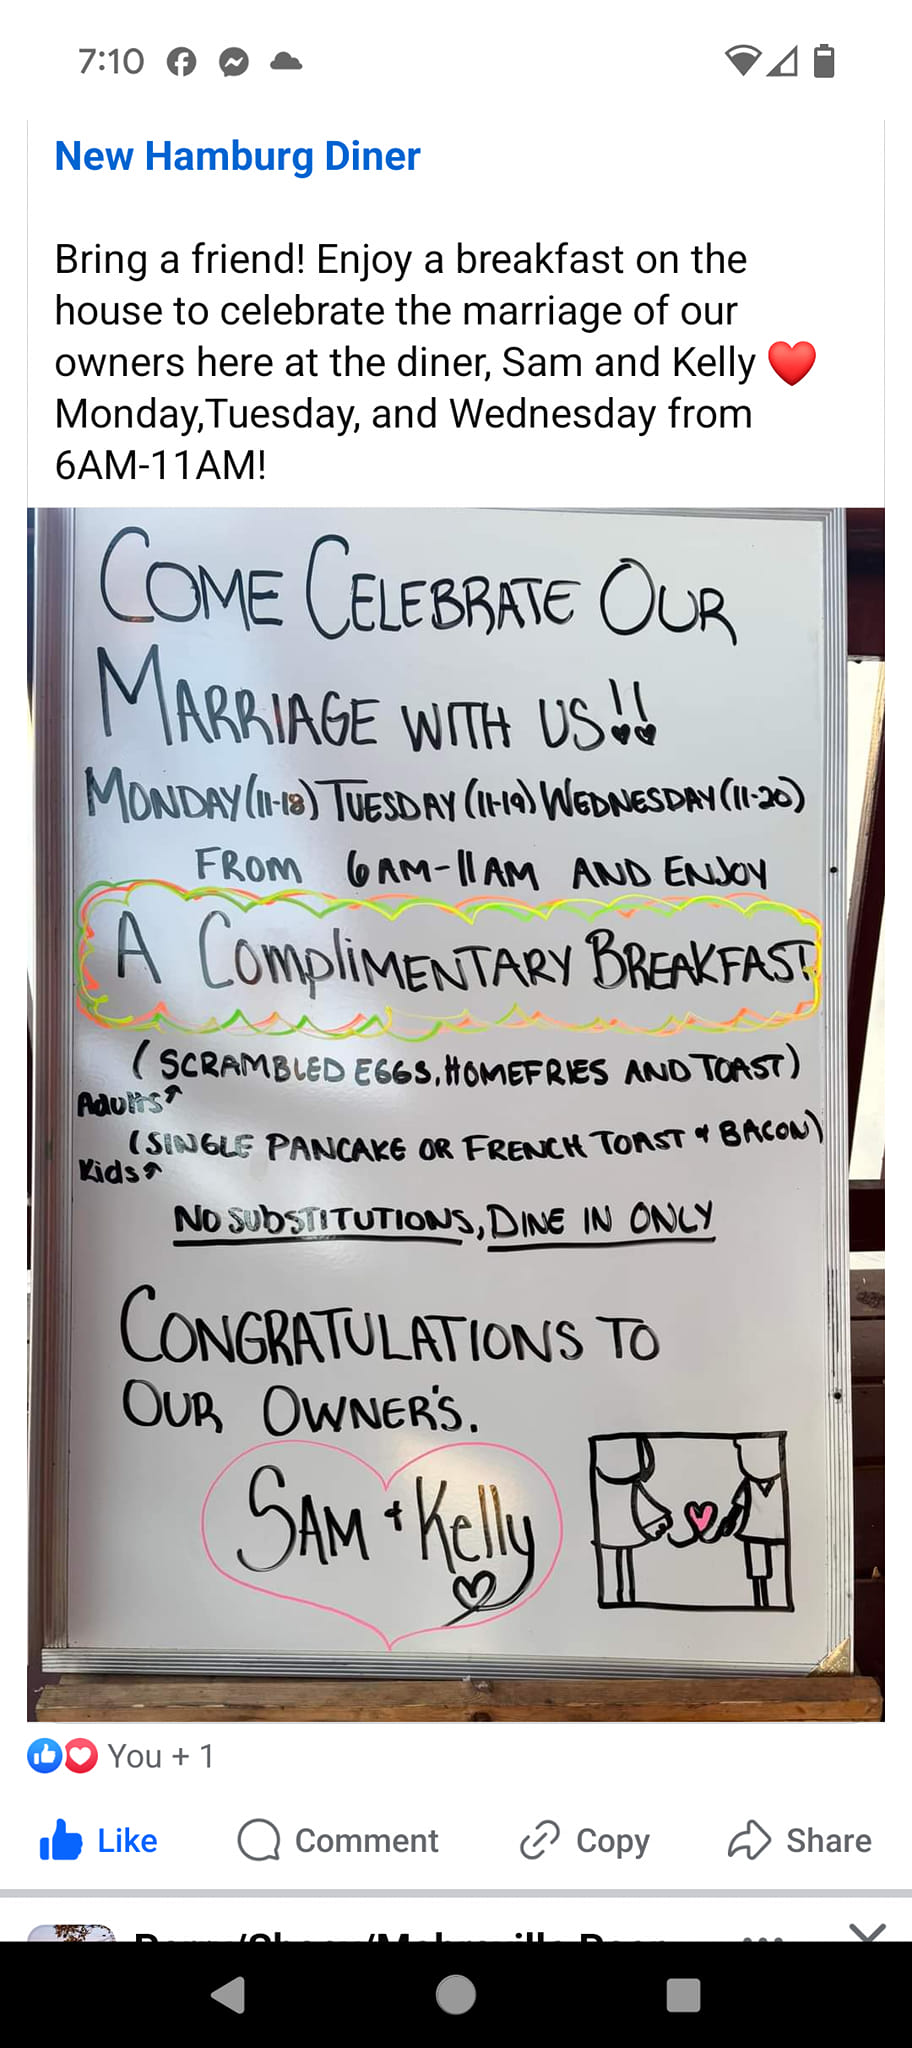 7:10
New Hamburg Diner
Bring a friend! Enjoy a breakfast on the
house to celebrate the marriage of our
owners here at the diner, Sam and Kelly ❤️
Monday,Tuesday, and Wednesday from
6AM-11AM!
COME CELEBRATE OUR
MARRIAGE WITH US!!
MONDAY (11-18) TUESDAY (11-19) WEDNESDAY (11-20)
FROM 6AM-11AM AND ENJOY
A COMPLIMENTARY BREAKFAST!
(SCRAMBLED EGGS, HOMEFRIES AND TOAST)
Adults↑
(SINGLE PANCAKE OR FRENCH TOAST & BACON)
Kids↑
NO SUBSTITUTIONS, DINE IN ONLY
CONGRATULATIONS TO
OUR OWNER'S.
SAM & Kelly
You + 1
Like Comment Copy Share